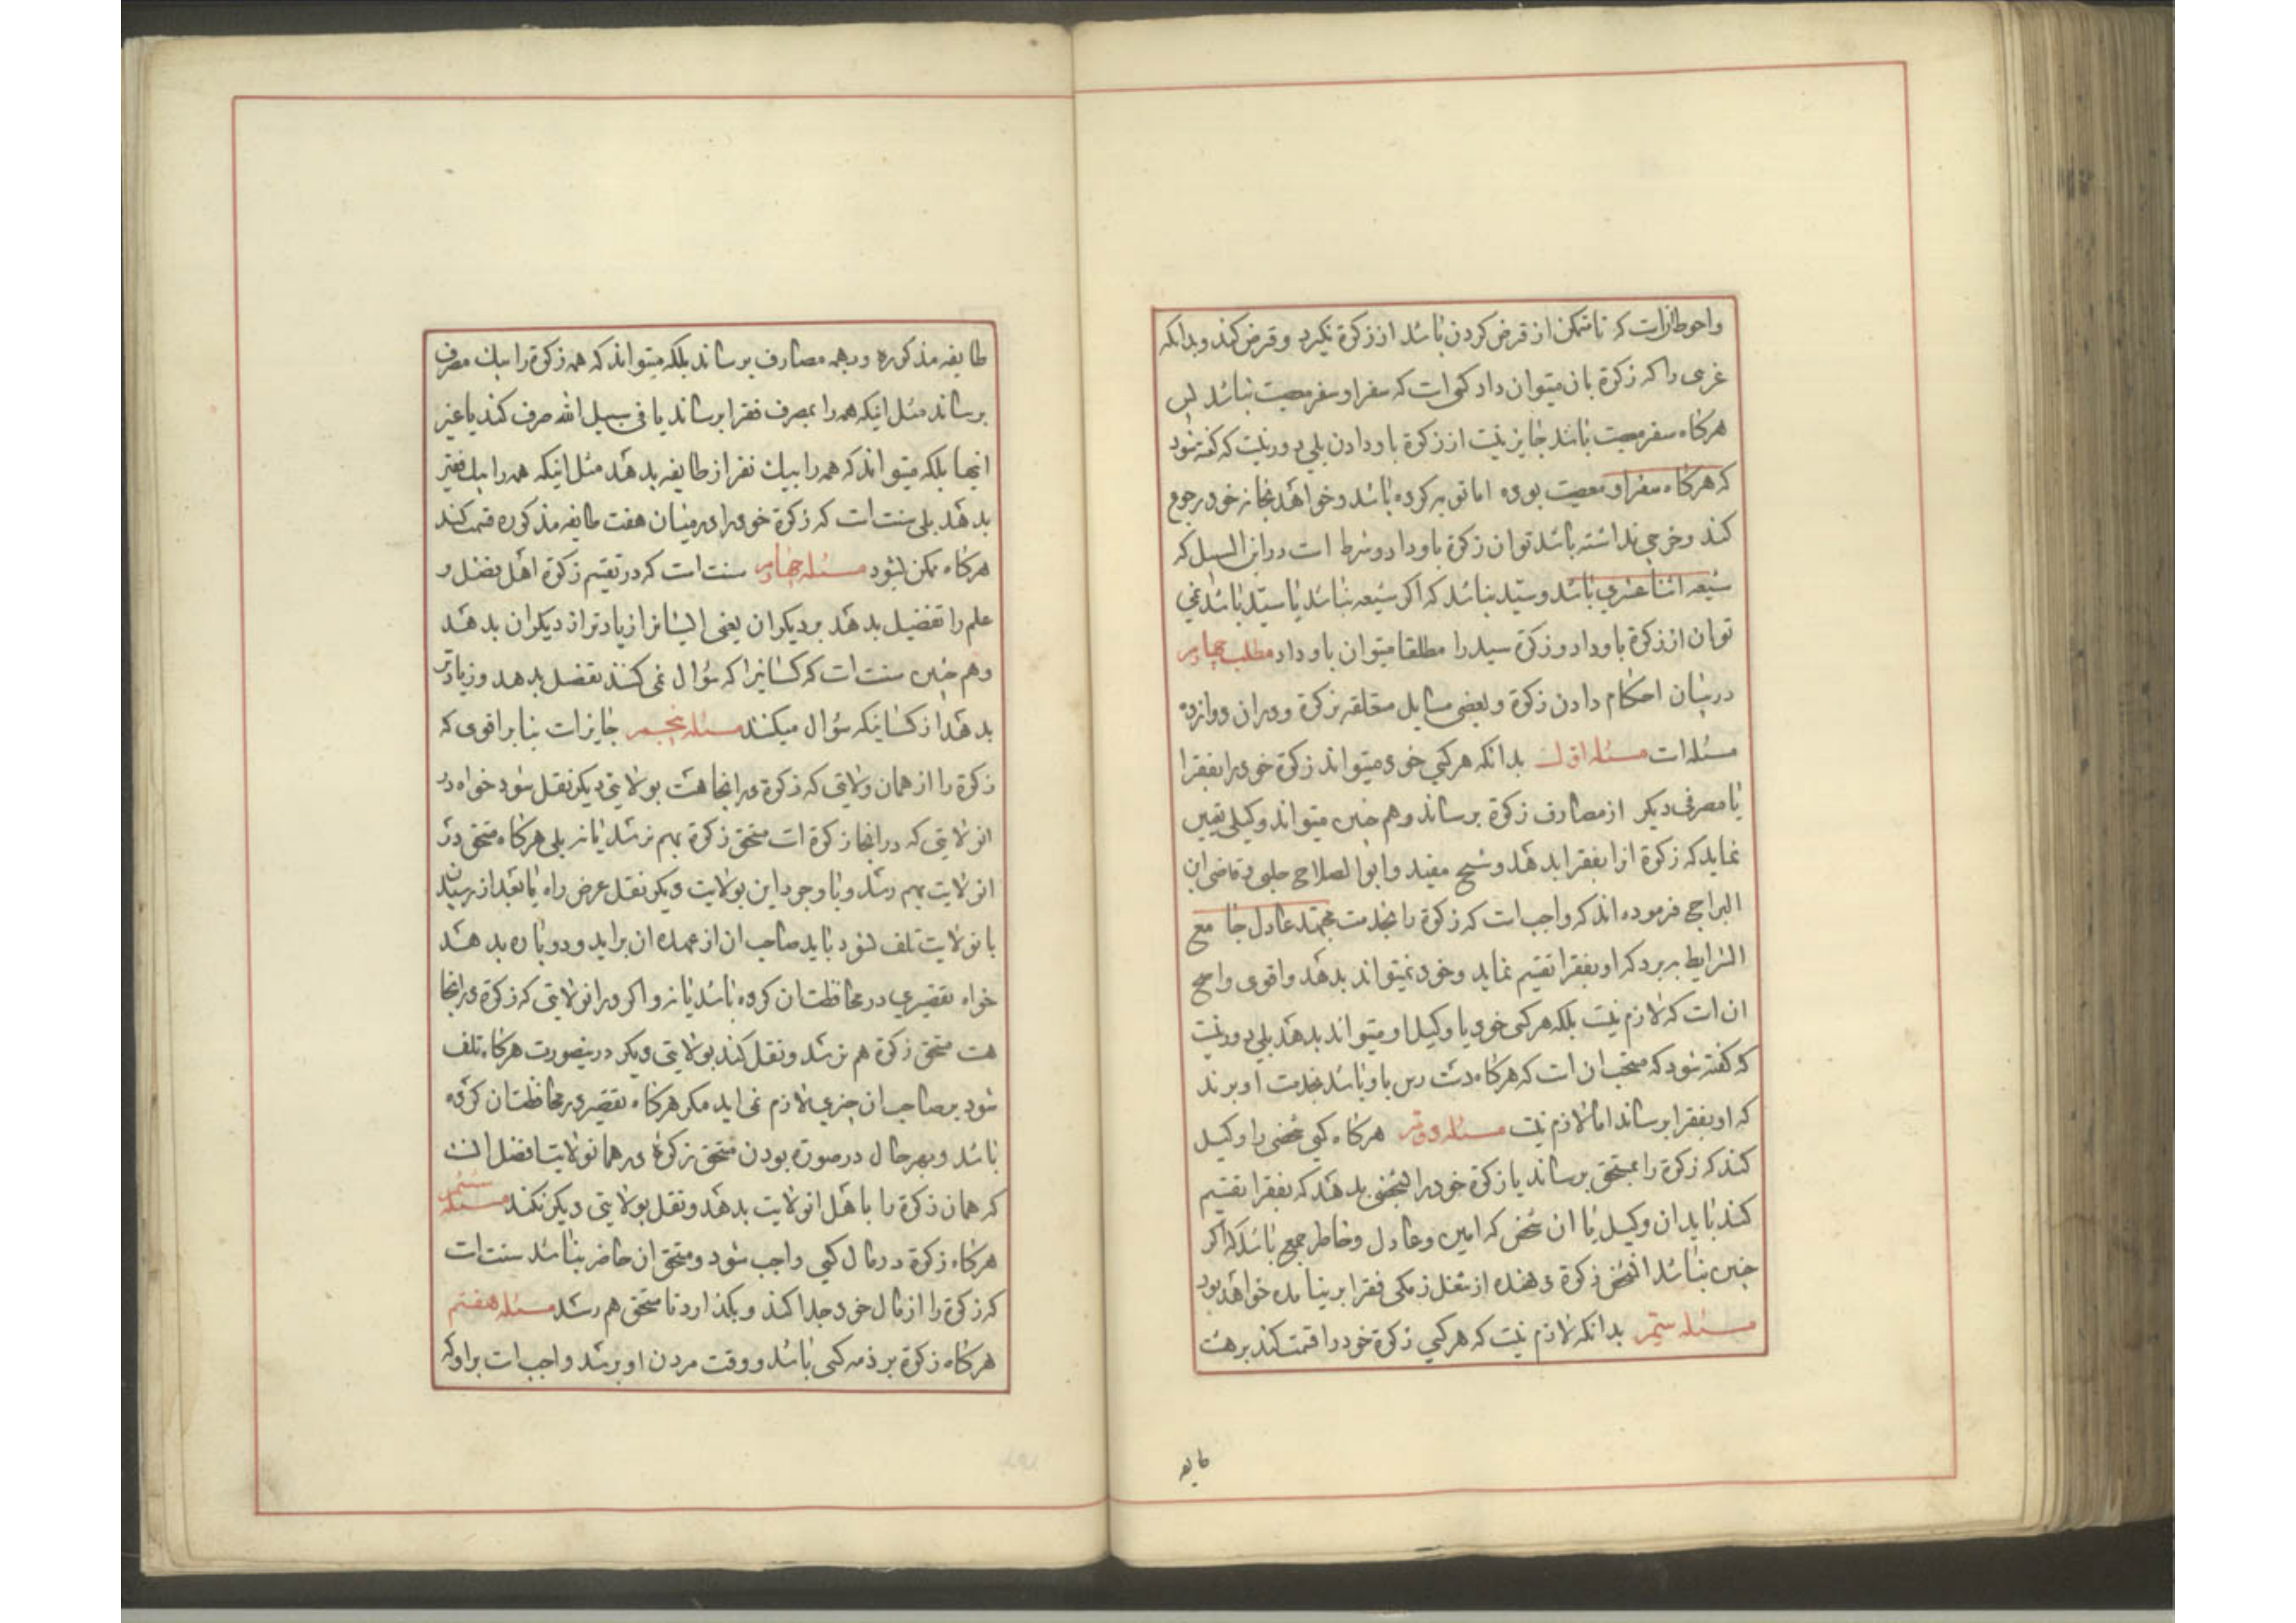 واحوط انست که تا متمکن از قرض کردن باشد از زکوة نکیرد و قرض کند وبدانکه
غرمی را که زکوة بان میتوان داد کسی است که سفر او سفر معصیت نباشد پس
هرکاه سفر معصیت باشد جایز نیست از زکوة باو دادن بلی دور نیست که کفته شود
که هرکاه سفر او معصیت بوده اما توبه کرده باشد وخواهد بخانه خود رجوع
کند وخرجی نداشته باشد توان زکوة باو داد وشرط است در ابن السبیل که
شیعه اثنا عشری باشد وسید نباشد که اکر شیعه نباشد یا سید باشد نمی
توان از زکوة باو داد و زکوة سید را مطلقا میتوان باو داد مطلب چهارم
در بیان احکام دادن زکوة وبعضی مسایل متعلقه بزکوة ودران دوازده
مسئله است مسئله اول بدانکه هرکسی خود میتواند زکوة خود را بفقرا
یا مصرفی دیکر از مصارف زکوة برساند وهم چنین میتواند وکیلی تعیین
نماید که زکوة انرا بفقرا بدهد وشیخ مفید وابوالصلاح حلبی وقاضی ابن
البراج فرموده اند که واجب است که زکوة را بخدمت مجتهد عادل جامع
الشرایط ببرد که او بفقرا تقسیم نماید وخود نمیتواند بدهد واقوی واصح
ان است که لازم نیست بلکه هرکس خود یا وکیل او میتواند بدهد بلی دور نیست
که کفته شود که مستحب ان است که هرکاه دست رس باو باشد بخدمت او برند
که او بفقرا برساند اما لازم نیست مسئله دویم هرکاه کسی شخصی را وکیل
کند که زکوة را بمستحق برساند یا زکوة خود را بشخصی بدهد که بفقرا تقسیم
کند باید ان وکیل یا ان شخص که امین وعادل وخاطر جمع باشد که اکر
چنین نباشد انشخص زکوة دهنده از شغل ذمکی فقرا بر نیامده خواهد بود
مسئله سیم بدانکه لازم نیست که هرکسی زکوة خود را قسمت کند بر هشت
طایفه
طایفه مذکوره وبهمه مصارف برساند بلکه میتواند که همه زکوة را بیک مصرف
برساند مثل اینکه همه را بمصرف فقرا برساند یا فی سبیل الله صرف کند یا غیر
اینها بلکه میتواند که همه را بیک نفر از طایفه بدهد مثل اینکه همه را بیک فقیر
بدهد بلی سنت است که زکوة خود را در میان هفت طایفه مذکوره قسمت کند
هرکاه ممکن شود مسئله چهارم سنت است که در تقسیم زکوة اهل فضل و
علم را تفضیل بدهد بر دیکران یعنی ایشانرا زیادتر از دیکران بدهد
وهم چنین سنت است که کسانیرا که سؤال نمی کنند تفضل بدهد وزیادتر
بدهد از کسانیکه سؤال میکنند مسئله پنجم جایز است بنابر اقوی که
زکوة را از همان ولایتی که زکوة در انجا هست بولایتی دیکر نقل شود خواه در
انولایتی که در انجا زکوة است مستحق زکوة بهم برسد یا نه بلی هرکاه مستحق در
انولایت بهم رسد وبا وجود این بولایت دیکر نقل عرض راه یا بعد از رسیدن
بانولایت تلف شود باید صاحب ان از عهده ان براید ودوباره بدهد
خواه تقصیری در محافظت ان کرده باشد یا نه واکر در انولایتی که زکوة در انجا
هست مستحق زکوة هم نرسد ونقل کند بولایتی دیکر درینصورت هرکاه تلف
شود بر صاحب ان چیزی لازم نمی اید مکر هرکاه تقصیر در محافظت ان کرده
باشد وبهر حال در صورة بودن مستحق زکوة در همانولایت افضل انست
که همان زکوة را باهل انولایت بدهد ونقل بولایتی دیکر نکند مسئله ششم
هرکاه زکوة در مال کسی واجب شود ومستحق ان حاضر نباشد سنت است
که زکوة را از مال خود جدا کند وبکذارد تا مستحق هم رسد مسئله هفتم
هرکاه زکوة بر ذمه کسی باشد ووقت مردن او برسد واجب است بر او که